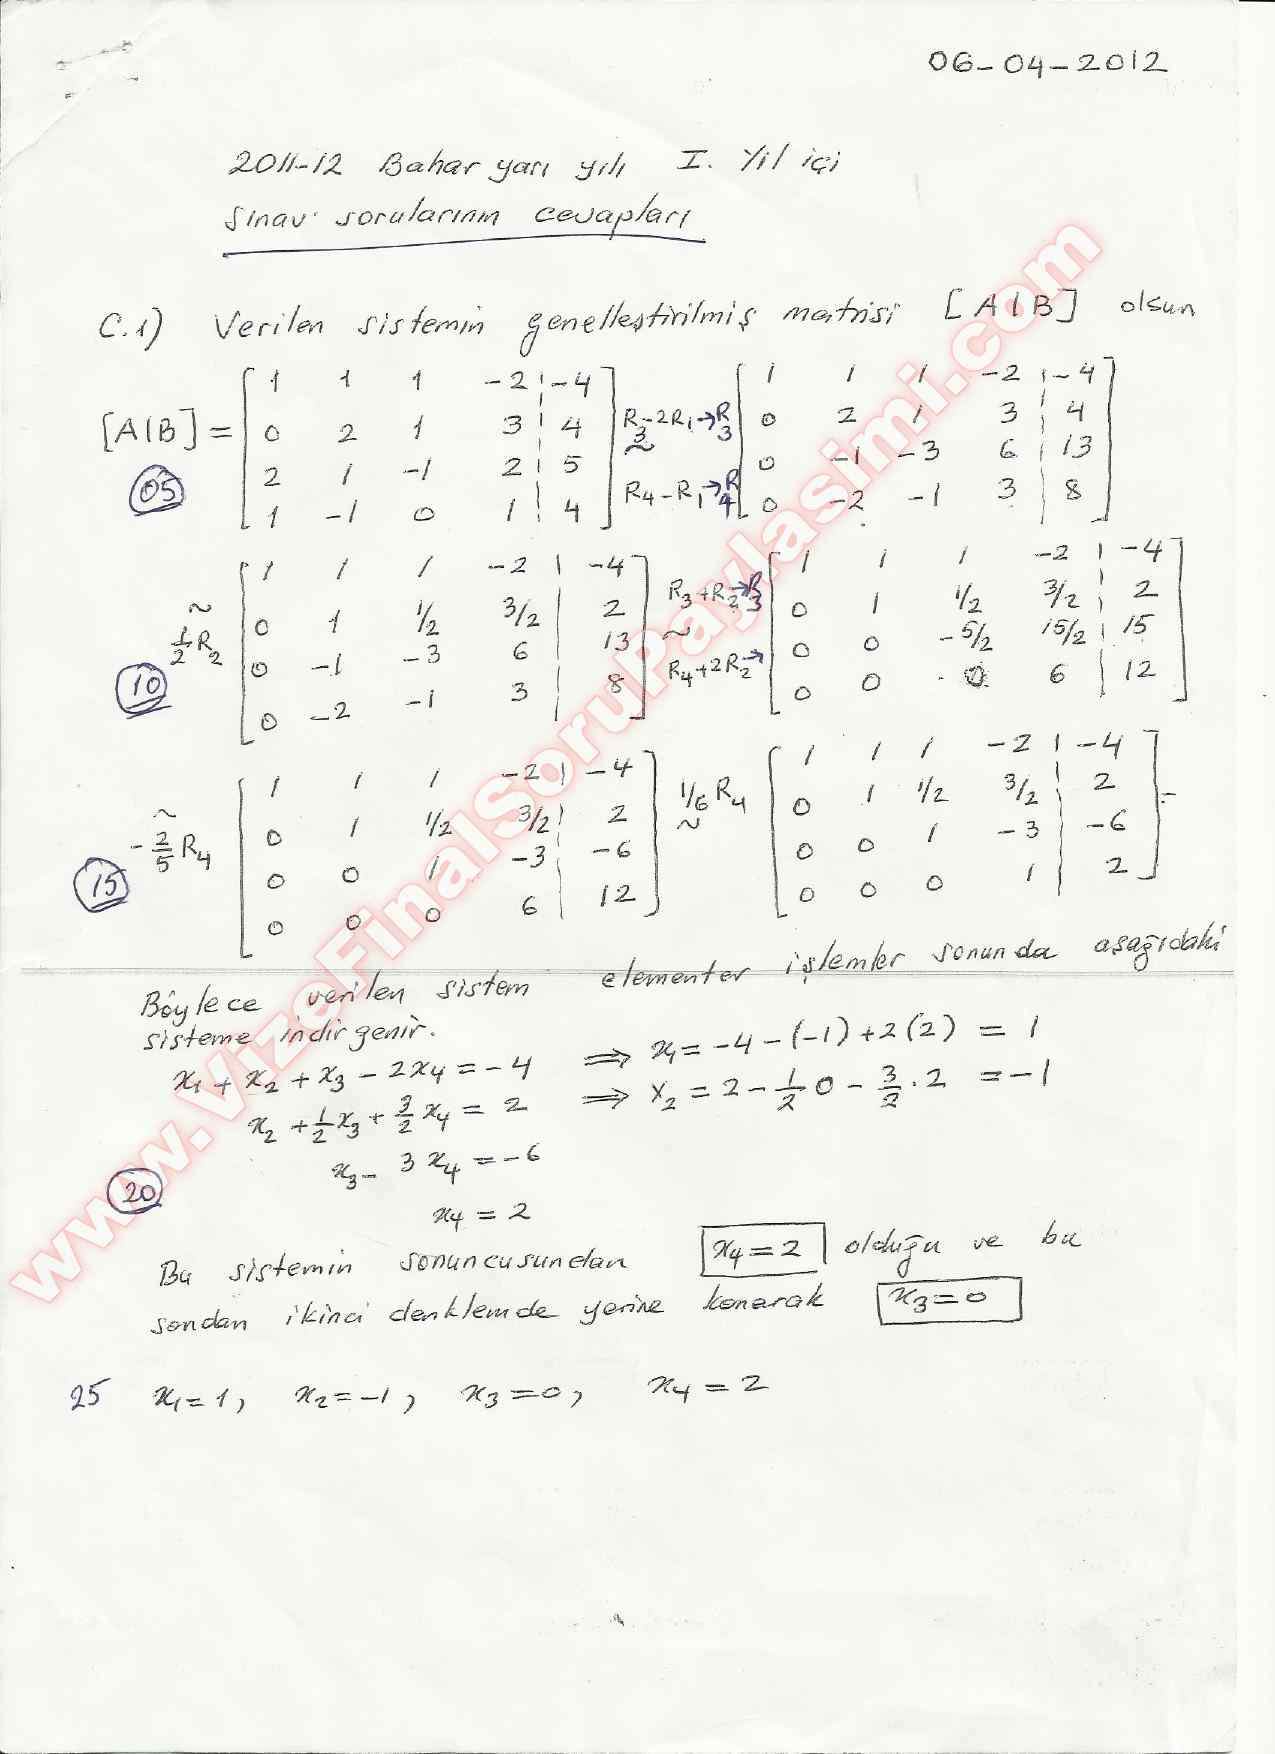 06-04-2012
2011-12 Bahar yarı yılı I. Yıl içi
Sınav sorularının cevapları
C.1) Verilen sistemin genelleştirilmiş matrisi [A|B] olsun
[A|B] = [1 1 1 -2 | -4; 0 2 1 3 | 4; 2 1 -1 2 | 5; 1 -1 0 1 | 4] R3-2R1→R3 ~ R4-R1→R4 [1 1 1 -2 | -4; 0 2 1 3 | 4; 0 -1 -3 6 | 13; 0 -2 -1 3 | 8]
05
~ 1/2 R2 [1 1 1 -2 | -4; 0 1 1/2 3/2 | 2; 0 -1 -3 6 | 13; 0 -2 -1 3 | 8] R3+R2→R3 ~ R4+2R2→ [1 1 1 -2 | -4; 0 1 1/2 3/2 | 2; 0 0 -5/2 15/2 | 15; 0 0 0 6 | 12]
10
~ -2/5 R4 [1 1 1 -2 | -4; 0 1 1/2 3/2 | 2; 0 0 1 -3 | -6; 0 0 0 6 | 12] 1/6 R4 ~ [1 1 1 -2 | -4; 0 1 1/2 3/2 | 2; 0 0 1 -3 | -6; 0 0 0 1 | 2]
15
Böylece verilen sistem elementer işlemler sonunda aşağıdaki
sisteme indirgenir.
x1 + x2 + x3 - 2x4 = -4 ⇒ x1 = -4 - (-1) + 2(2) = 1
x2 + 1/2 x3 + 3/2 x4 = 2 ⇒ x2 = 2 - 1/2 0 - 3/2 . 2 = -1
x3 - 3x4 = -6
20
x4 = 2
Bu sistemin sonuncusundan x4 = 2 olduğu ve bu
sondan ikinci denklemde yerine konarak x3 = 0
25 x1 = 1, x2 = -1, x3 = 0, x4 = 2
www.VizeFinalSoruPaylasimi.com